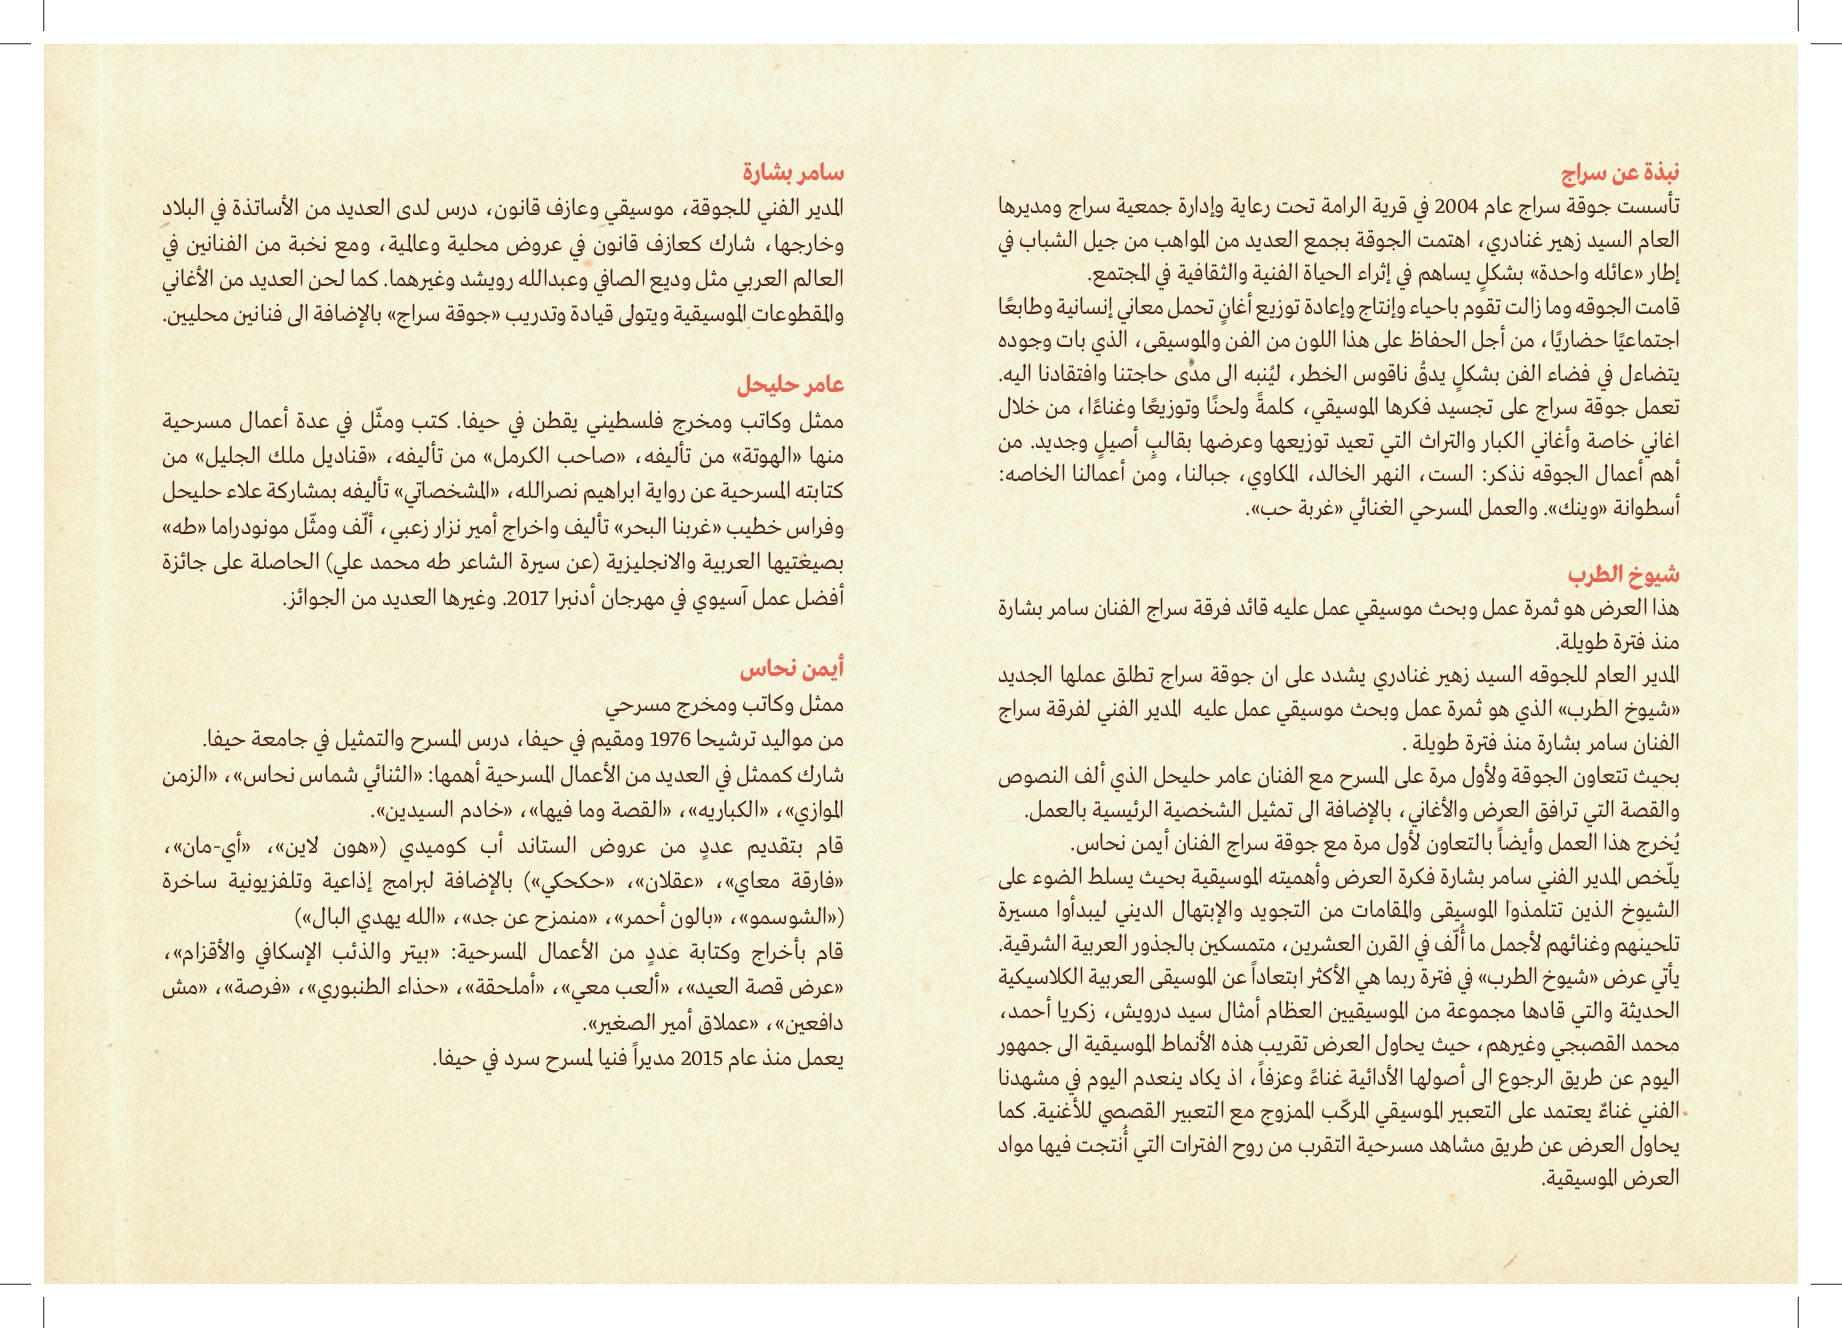 نبذة عن سراج
تأسست جوقة سراج عام 2004 في قرية الرامة تحت رعاية وإدارة جمعية سراج ومديرها
العام السيد زهير غنادري، اهتمت الجوقة بجمع العديد من المواهب من جيل الشباب في
إطار «عائله واحدة» بشكلٍ يساهم في إثراء الحياة الفنية والثقافية في المجتمع.
قامت الجوقه وما زالت تقوم باحياء وإنتاج وإعادة توزيع أغانٍ تحمل معاني إنسانية وطابعًا
اجتماعيًا حضاريًا، من أجل الحفاظ على هذا اللون من الفن والموسيقى، الذي بات وجوده
يتضاءل في فضاء الفن بشكلٍ يدقُ ناقوس الخطر، ليُنبه الى مدى حاجتنا وافتقادنا اليه.
تعمل جوقة سراج على تجسيد فكرها الموسيقي، كلمةً ولحنًا وتوزيعًا وغناءًا، من خلال
اغاني خاصة وأغاني الكبار والتراث التي تعيد توزيعها وعرضها بقالبٍ أصيلٍ وجديد. من
أهم أعمال الجوقه نذكر: الست، النهر الخالد، المكاوي، جبالنا، ومن أعمالنا الخاصه:
أسطوانة «وينك». والعمل المسرحي الغنائي «غربة حب».
شيوخ الطرب
هذا العرض هو ثمرة عمل وبحث موسيقي عمل عليه قائد فرقة سراج الفنان سامر بشارة
منذ فترة طويلة.
المدير العام للجوقه السيد زهير غنادري يشدد على ان جوقة سراج تطلق عملها الجديد
«شيوخ الطرب» الذي هو ثمرة عمل وبحث موسيقي عمل عليه المدير الفني لفرقة سراج
الفنان سامر بشارة منذ فترة طويلة .
بحيث تتعاون الجوقة ولأول مرة على المسرح مع الفنان عامر حليحل الذي ألف النصوص
والقصة التي ترافق العرض والأغاني، بالإضافة الى تمثيل الشخصية الرئيسية بالعمل.
يُخرج هذا العمل وأيضاً بالتعاون لأول مرة مع جوقة سراج الفنان أيمن نحاس.
يلّخص المدير الفني سامر بشارة فكرة العرض وأهميته الموسيقية بحيث يسلط الضوء على
الشيوخ الذين تتلمذوا الموسيقى والمقامات من التجويد والإبتهال الديني ليبدأوا مسيرة
تلحينهم وغنائهم لأجمل ما أُلّف في القرن العشرين، متمسكين بالجذور العربية الشرقية.
يأتي عرض «شيوخ الطرب» في فترة ربما هي الأكثر ابتعاداً عن الموسيقى العربية الكلاسيكية
الحديثة والتي قادها مجموعة من الموسيقيين العظام أمثال سيد درويش، زكريا أحمد،
محمد القصبجي وغيرهم، حيث يحاول العرض تقريب هذه الأنماط الموسيقية الى جمهور
اليوم عن طريق الرجوع الى أصولها الأدائية غناءً وعزفاً، اذ يكاد ينعدم اليوم في مشهدنا
الفني غناءٌ يعتمد على التعبير الموسيقي المركّب الممزوج مع التعبير القصصي للأغنية. كما
يحاول العرض عن طريق مشاهد مسرحية التقرب من روح الفترات التي أُنتجت فيها مواد
العرض الموسيقية.
سامر بشارة
المدير الفني للجوقة، موسيقي وعازف قانون، درس لدى العديد من الأساتذة في البلاد
وخارجها، شارك كعازف قانون في عروض محلية وعالمية، ومع نخبة من الفنانين في
العالم العربي مثل وديع الصافي وعبدالله رويشد وغيرهما. كما لحن العديد من الأغاني
والمقطوعات الموسيقية ويتولى قيادة وتدريب «جوقة سراج» بالإضافة الى فنانين محليين.
عامر حليحل
ممثل وكاتب ومخرج فلسطيني يقطن في حيفا. كتب ومثّل في عدة أعمال مسرحية
منها «الهوتة» من تأليفه، «صاحب الكرمل» من تأليفه، «قناديل ملك الجليل» من
كتابته المسرحية عن رواية ابراهيم نصرالله، «المشخصاتي» تأليفه بمشاركة علاء حليحل
وفراس خطيب «غربنا البحر» تأليف واخراج أمير نزار زعبي، ألّف ومثّل مونودراما «طه»
بصيغتيها العربية والانجليزية (عن سيرة الشاعر طه محمد علي) الحاصلة على جائزة
أفضل عمل آسيوي في مهرجان أدنبرا 2017. وغيرها العديد من الجوائز.
أيمن نحاس
ممثل وكاتب ومخرج مسرحي
من مواليد ترشيحا 1976 ومقيم في حيفا، درس المسرح والتمثيل في جامعة حيفا.
شارك كممثل في العديد من الأعمال المسرحية أهمها: «الثنائي شماس نحاس»، «الزمن
الموازي»، «الكباريه»، «القصة وما فيها»، «خادم السيدين».
قام بتقديم عددٍ من عروض الستاند أب كوميدي («هون لاين»، «أي-مان»،
«فارقة معاي»، «عقلان»، «حكحكي») بالإضافة لبرامج إذاعية وتلفزيونية ساخرة
(«الشوسمو»، «بالون أحمر»، «منمزح عن جد»، «الله يهدي البال»)
قام بأخراج وكتابة عددٍ من الأعمال المسرحية: «بيتر والذئب الإسكافي والأقزام»،
«عرض قصة العيد»، «ألعب معي»، «أملحقة»، «حذاء الطنبوري»، «فرصة»، «مش
دافعين»، «عملاق أمير الصغير».
يعمل منذ عام 2015 مديراً فنيا لمسرح سرد في حيفا.